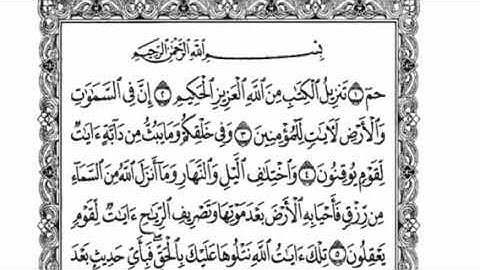 بِسْمِ ٱللَّهِ ٱلرَّحْمَٰنِ ٱلرَّحِيمِ
حمٓ ١ تَنزِيلُ ٱلْكِتَٰبِ مِنَ ٱللَّهِ ٱلْعَزِيزِ ٱلْحَكِيمِ ٢ إِنَّ فِى ٱلسَّمَٰوَٰتِ
وَٱلْأَرْضِ لَءَايَٰتٍ لِّلْمُؤْمِنِينَ ٣ وَفِى خَلْقِكُمْ وَمَا يَبُثُّ مِن دَآبَّةٍ ءَايَٰتٌ
لِّقَوْمٍ يُوقِنُونَ ٤ وَٱخْتِلَٰفِ ٱلَّيْلِ وَٱلنَّهَارِ وَمَآ أَنزَلَ ٱللَّهُ مِنَ ٱلسَّمَآءِ
مِن رِّزْقٍ فَأَحْيَا بِهِ ٱلْأَرْضَ بَعْدَ مَوْتِهَا وَتَصْرِيفِ ٱلرِّيَٰحِ ءَايَٰتٌ لِّقَوْمٍ
يَعْقِلُونَ ٥ تِلْكَ ءَايَٰتُ ٱللَّهِ نَتْلُوهَا عَلَيْكَ بِٱلْحَقِّ ۖ فَبِأَىِّ حَدِيثٍۭ بَعْدَ